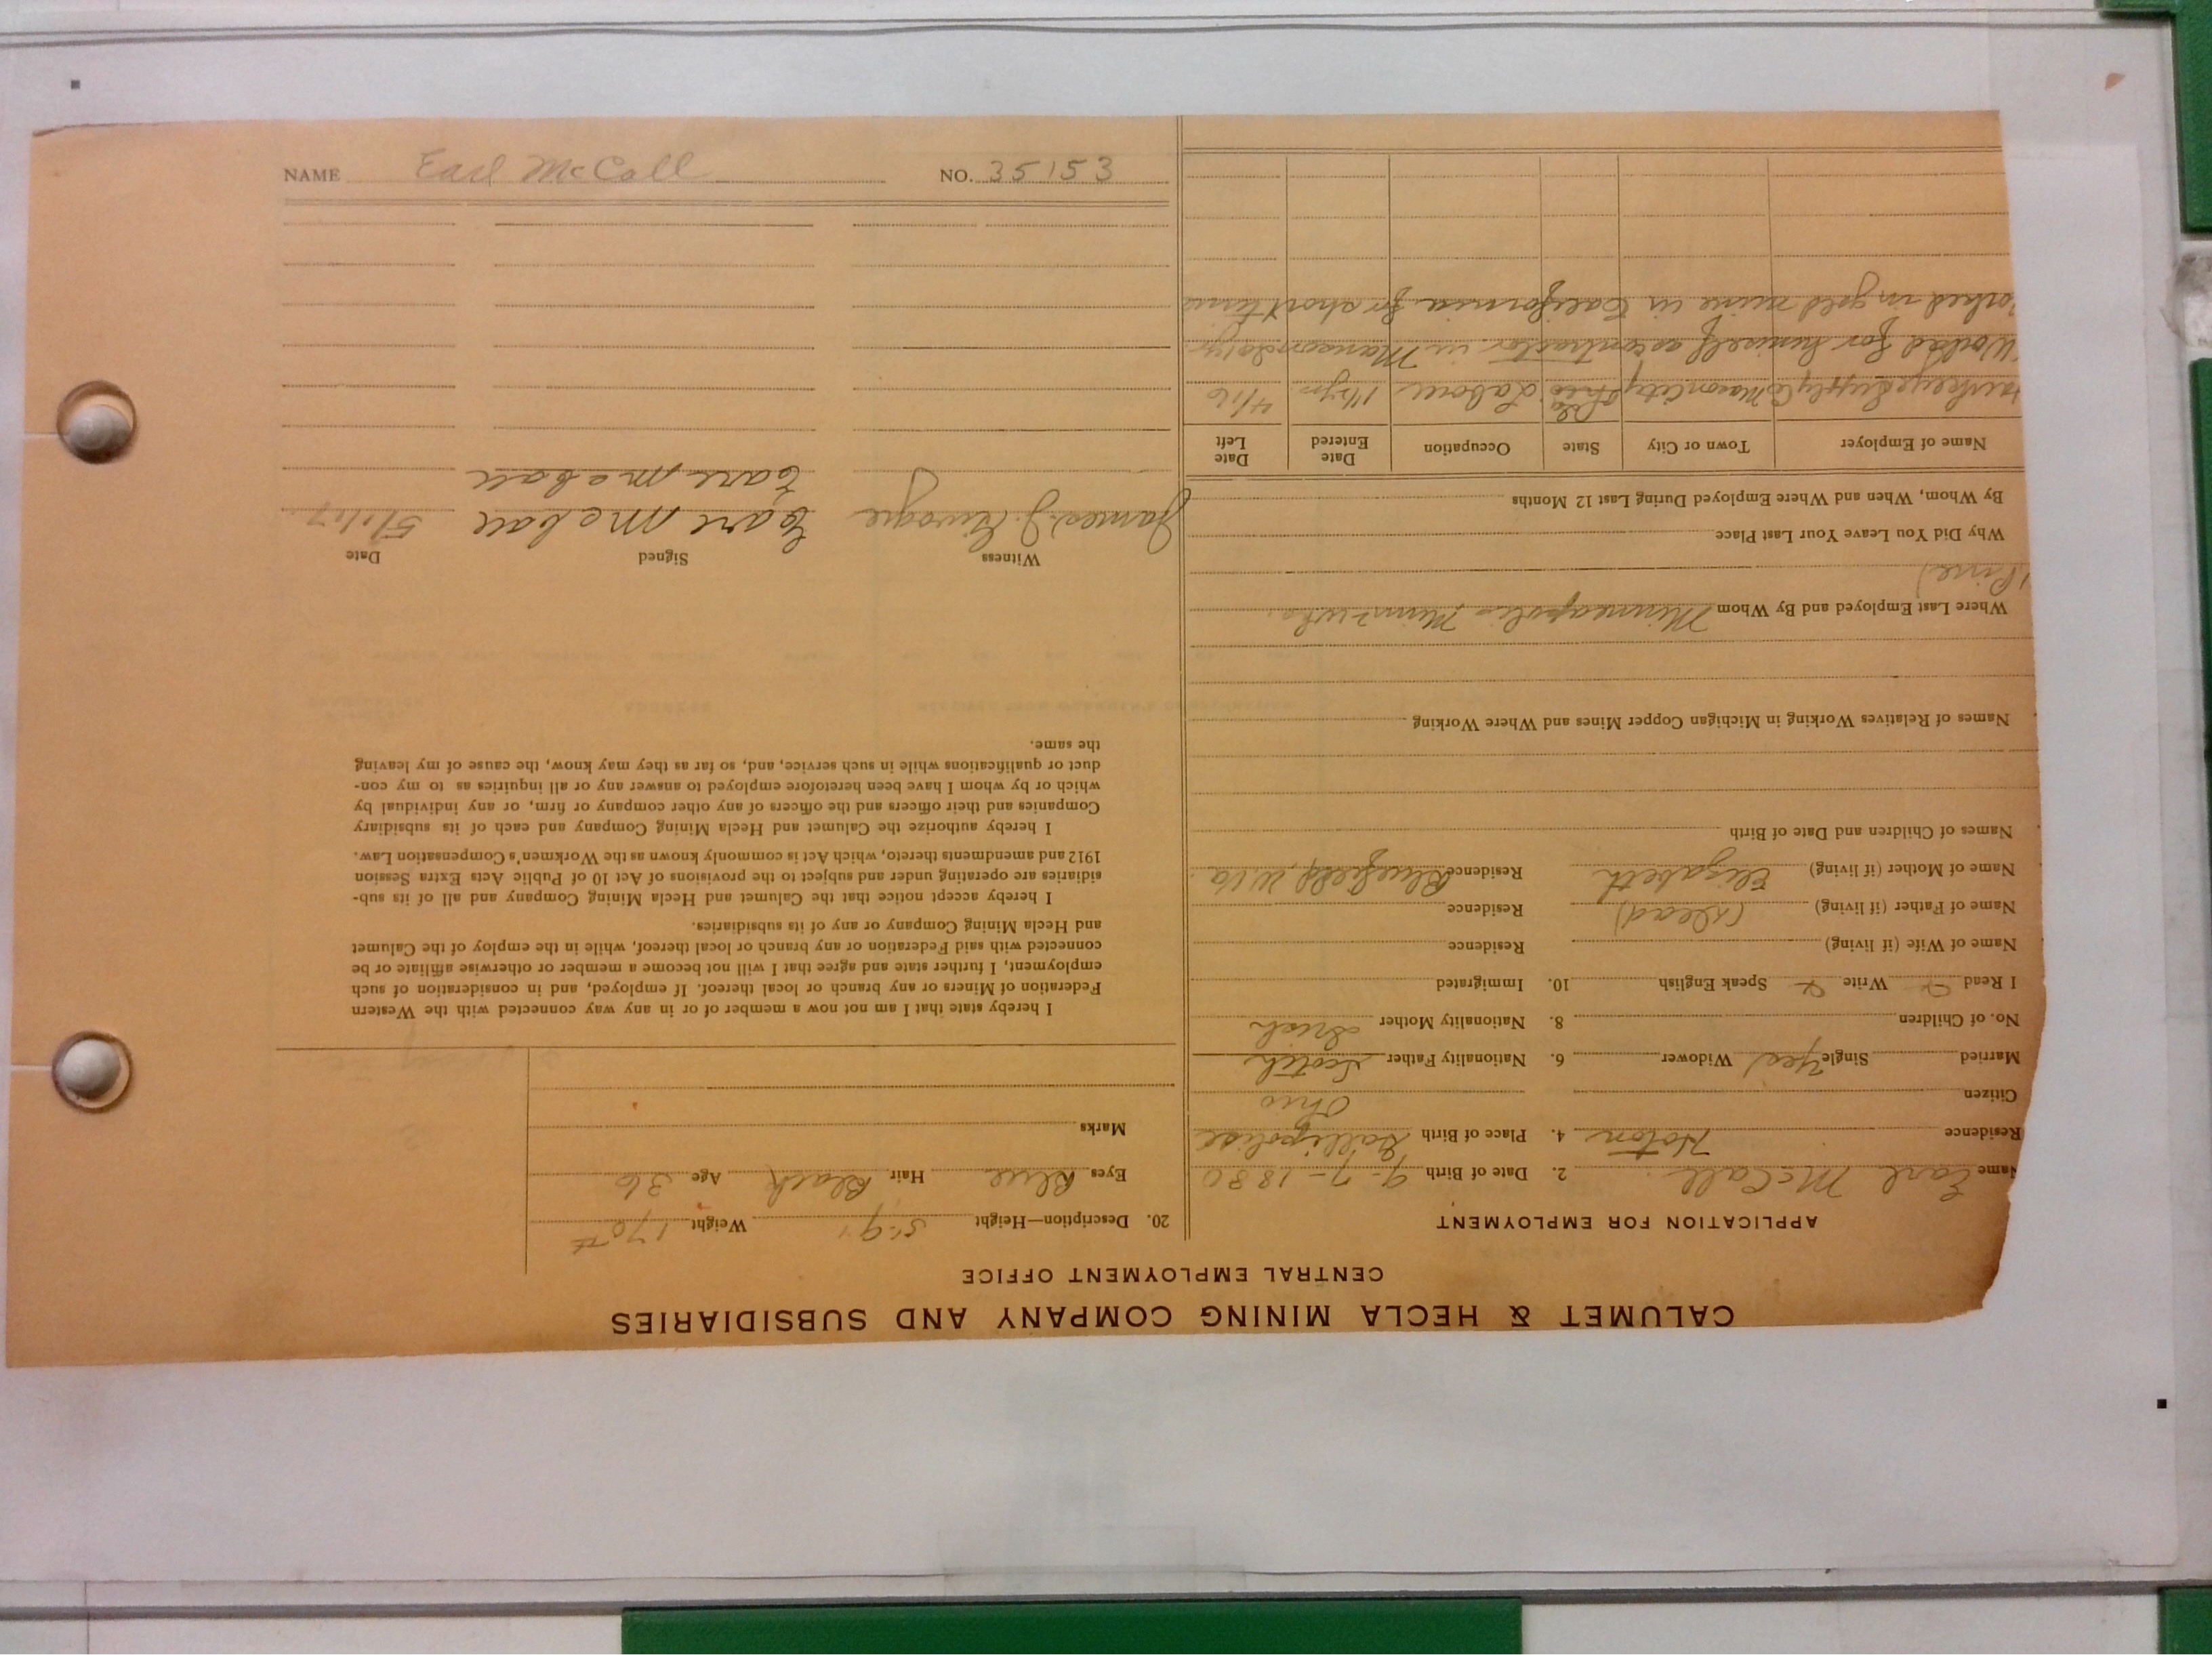 CALUMET & HECLA MINING COMPANY AND SUBSIDIARIES
CENTRAL EMPLOYMENT OFFICE
APPLICATION FOR EMPLOYMENT
Name Earl McCall 2. Date of Birth 9-7-1880
Residence Hoton 4. Place of Birth Gallipolise
Ohio
Citizen
Married Single Yes Widower 6. Nationality Father Scotch
No. of Children 8. Nationality Mother Irish
I Read Write Speak English 10. Immigrated
Name of Wife (if living) Residence
Name of Father (if living) (Dead) Residence
Name of Mother (if living) Elizabeth Residence Bluefield, W. Va
Names of Children and Date of Birth
Names of Relatives Working in Michigan Copper Mines and Where Working
Where Last Employed and By Whom Minneapolis Minn
Why Did You Leave Your Last Place
By Whom, When and Where Employed During Last 12 Months
Name of Employer Town or City State Occupation Date Entered Date Left
Supply Co Mason City Labor 1 1/2 yrs 4/16
Worked for himself as contractor in
in gold mine in California for short time
20. Description—Height 5'-9" Weight 170#
Eyes Blue Hair Black Age 36
Marks
I hereby state that I am not now a member of or in any way connected with the Western
Federation of Miners or any branch or local thereof. If employed, and in consideration of such
employment, I further state and agree that I will not become a member or otherwise affiliate or be
connected with said Federation or any branch or local thereof, while in the employ of the Calumet
and Hecla Mining Company or any of its subsidiaries.
I hereby accept notice that the Calumet and Hecla Mining Company and all of its sub-
sidiaries are operating under and subject to the provisions of Act 10 of Public Acts Extra Session
1912 and amendments thereto, which Act is commonly known as the Workmen's Compensation Law.
I hereby authorize the Calumet and Hecla Mining Company and each of its subsidiary
Companies and their officers and the officers of any other company or firm, or any individual by
which or by whom I have been heretofore employed to answer any or all inquiries as to my con-
duct or qualifications while in such service, and, so far as they may know, the cause of my leaving
the same.
Witness Signed Date
James J. Earl McCall 5/1/17
Earl McCall
NAME Earl McCall NO. 35153